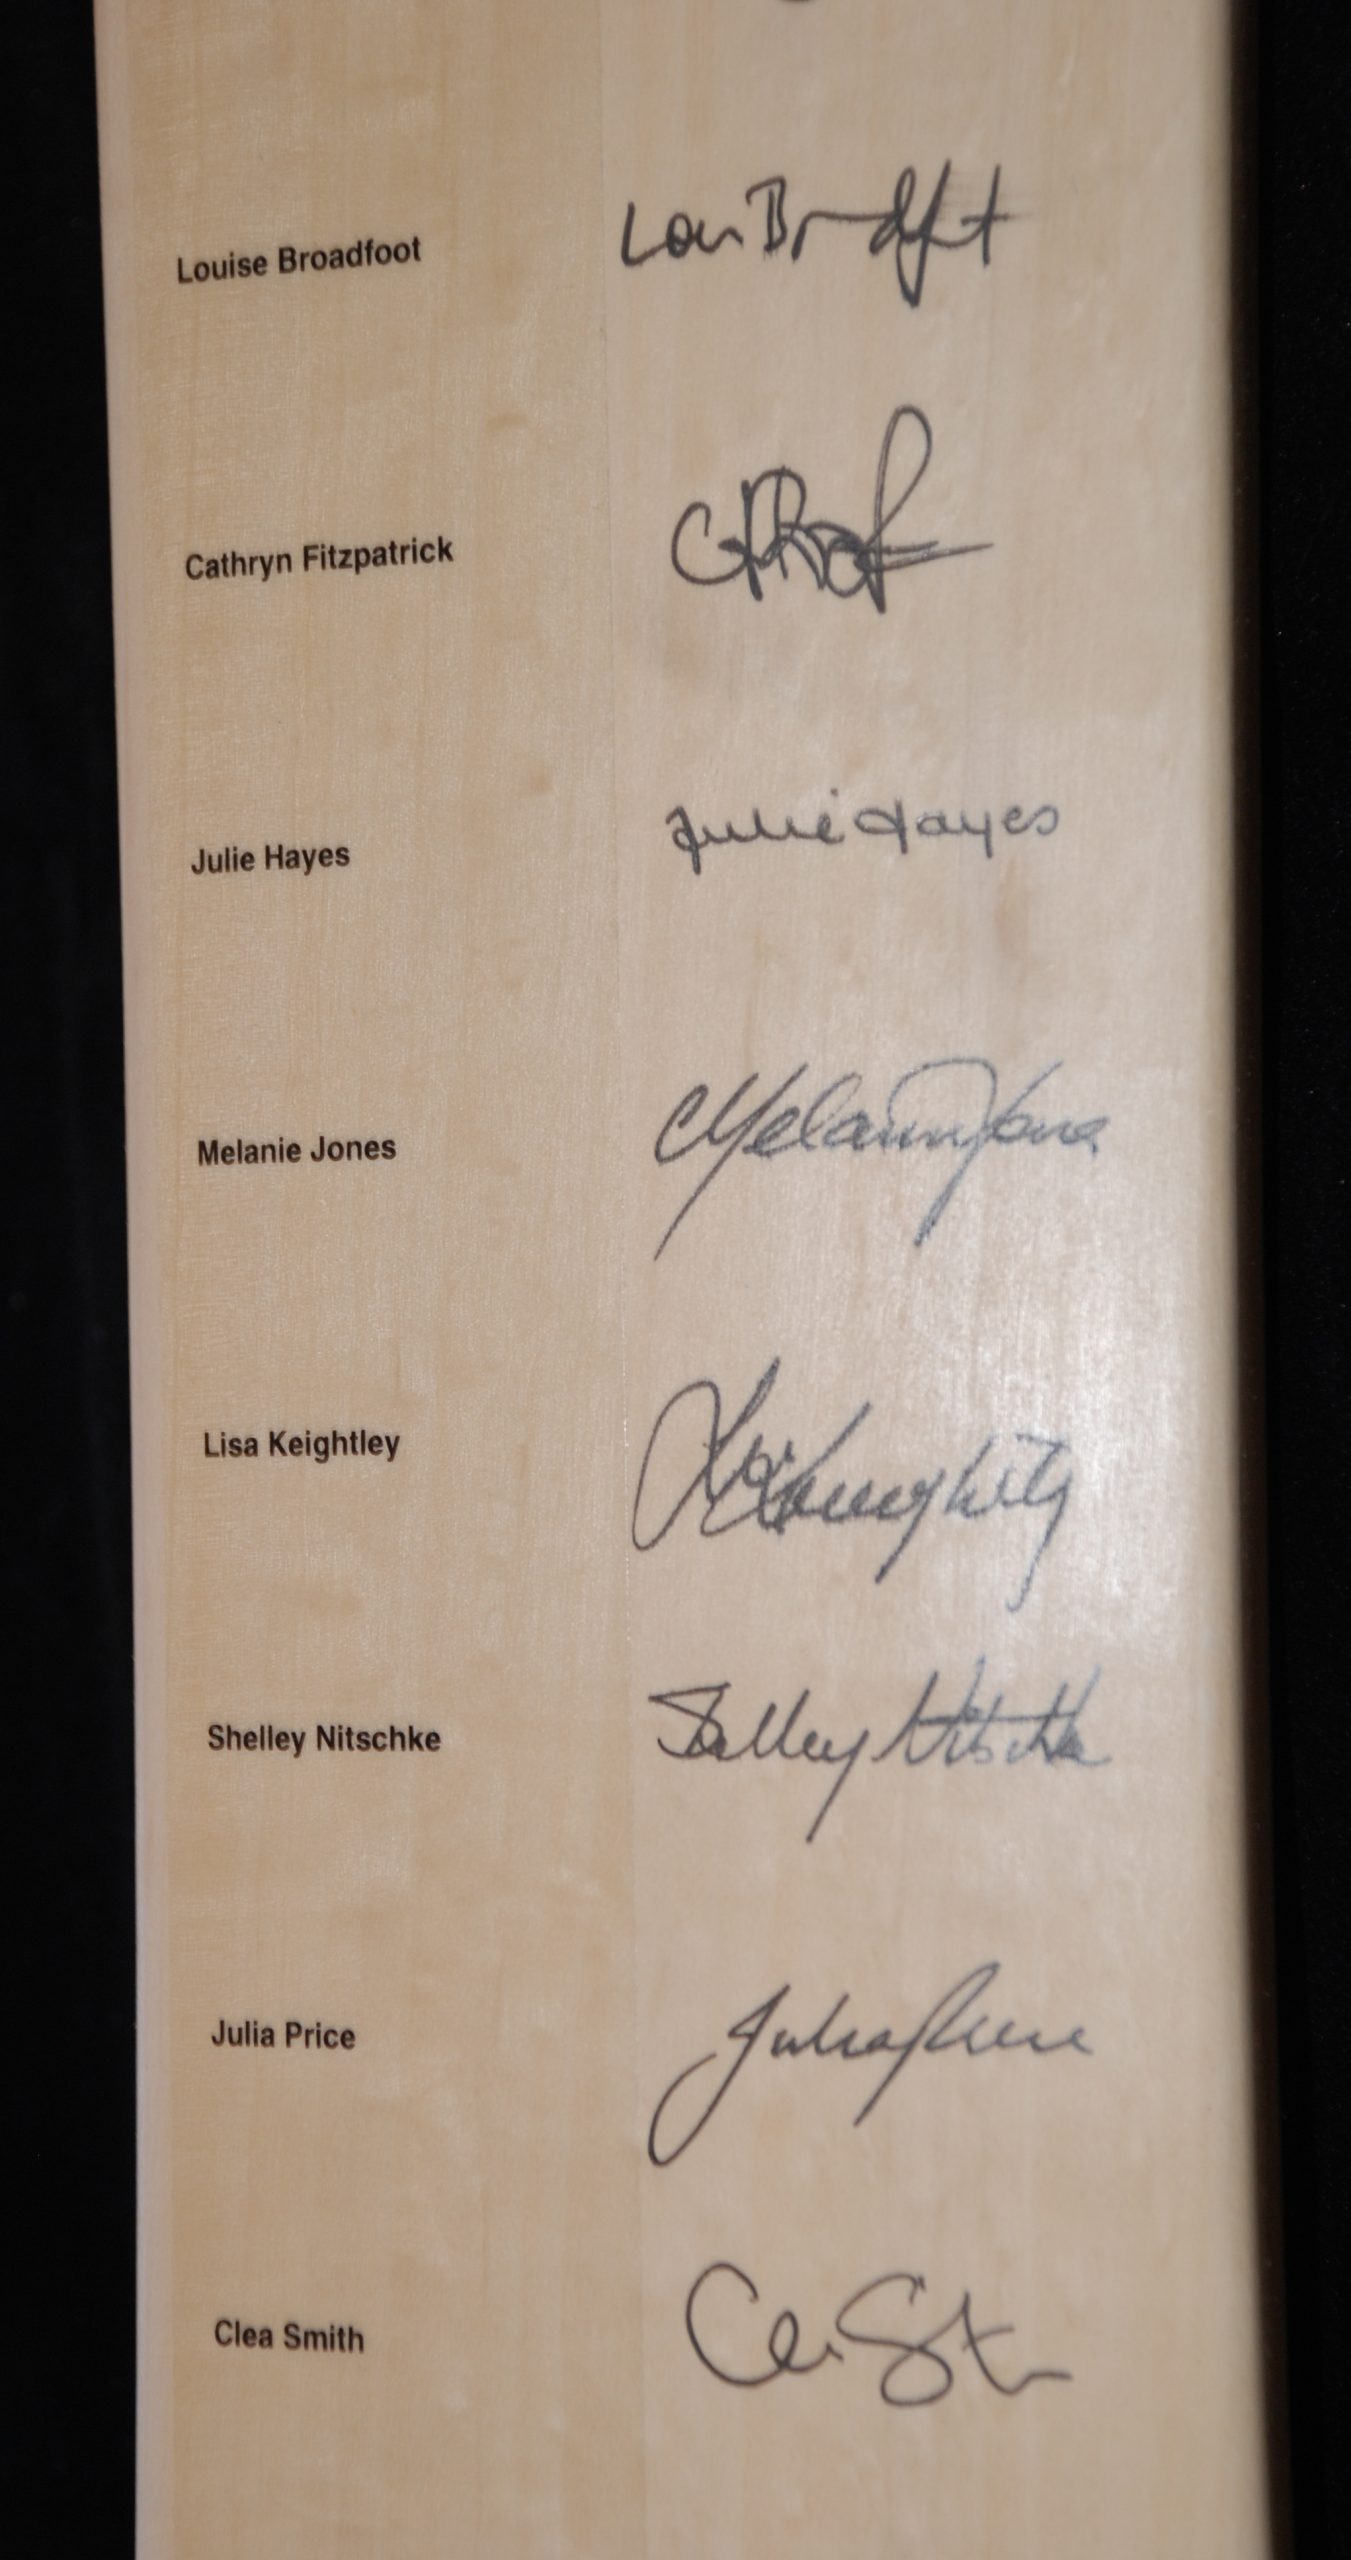 Louise Broadfoot Lou Broadfoot
Cathryn Fitzpatrick
Julie Hayes Julie Hayes
Melanie Jones Melanie Jones
Lisa Keightley Lisa Keightley
Shelley Nitschke Shelley Nitschke
Julia Price Julia Price
Clea Smith